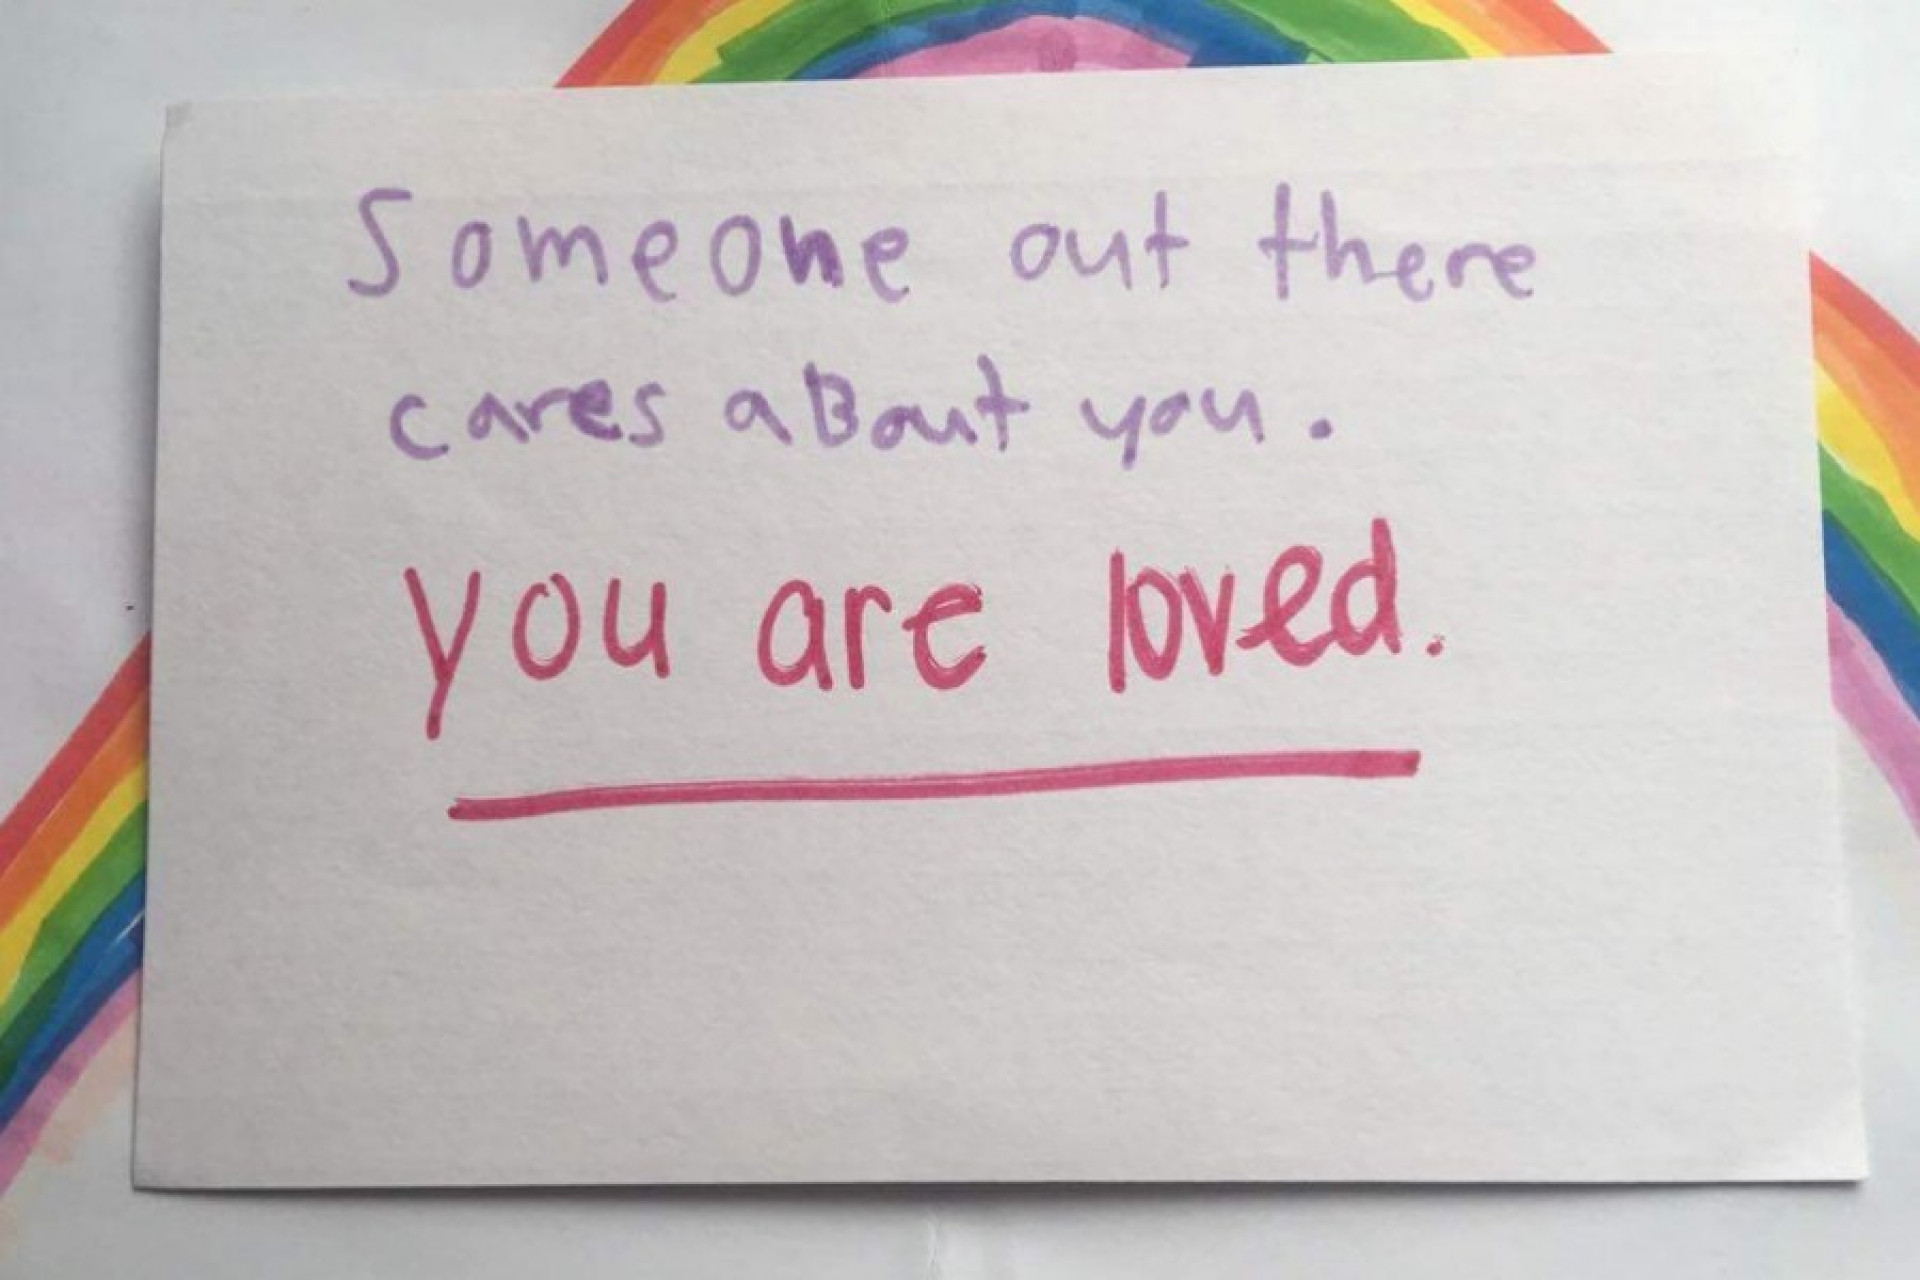 Someone out there
cares aBout you.
you are loved.